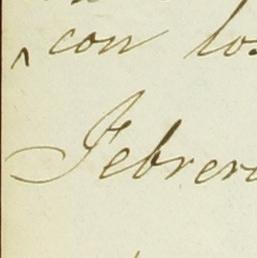 con los
Febrero